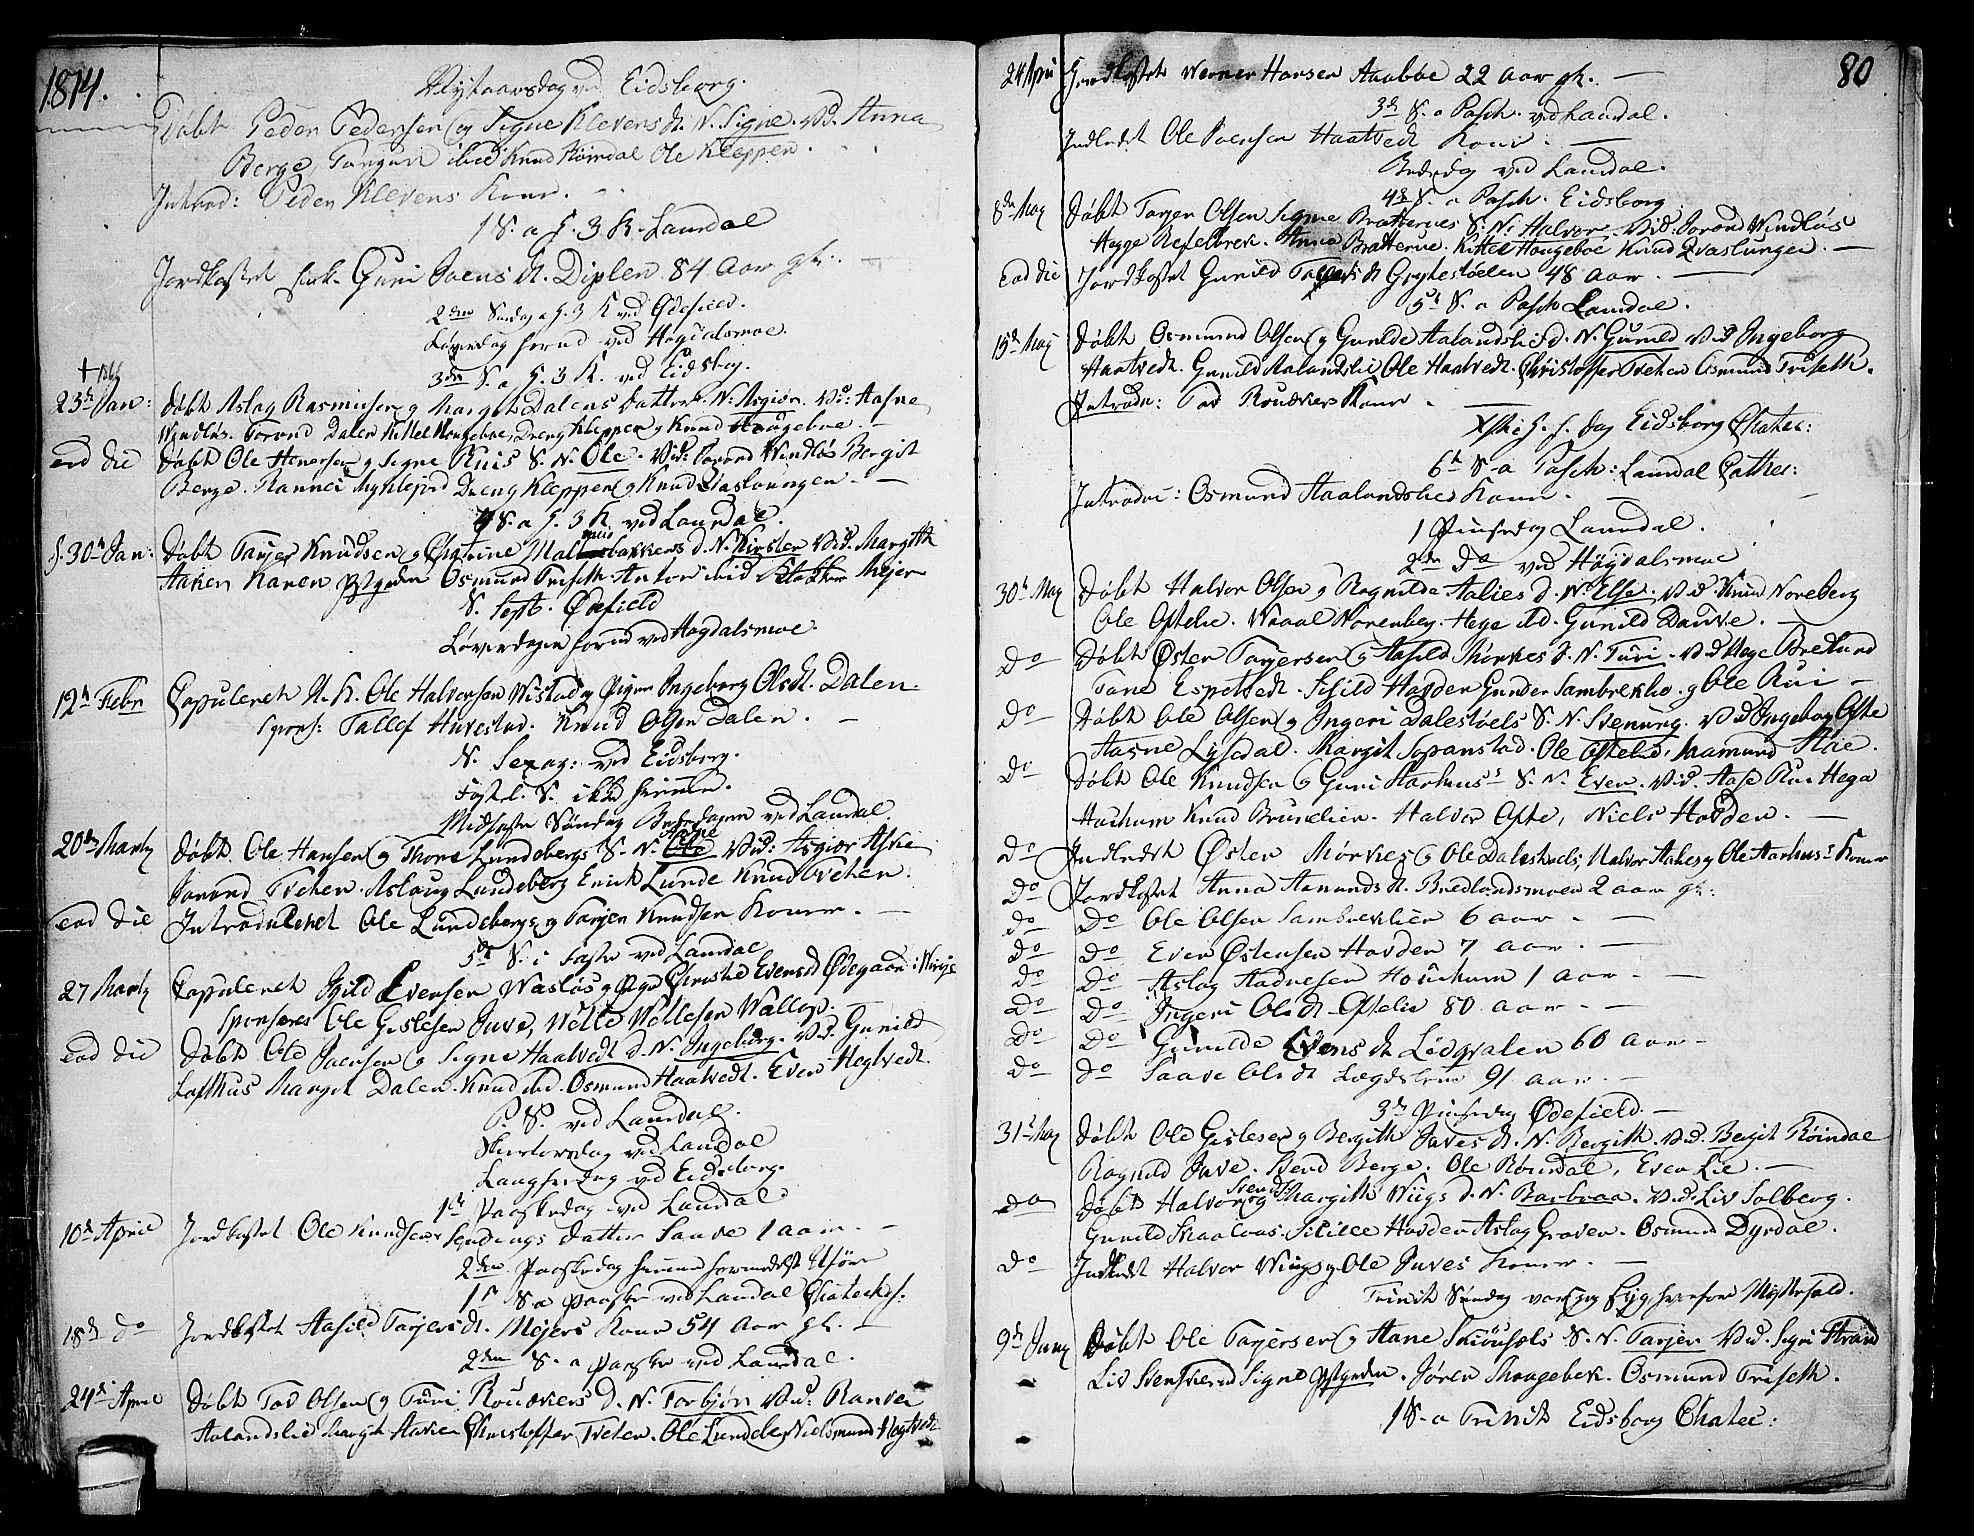 1814.
Nytaarsdag ved Eidsborg.
Døbt Peder Pedersen og Signe Klevens d. N. Signe. Vid. Anna
Berge, Torgun ibid Knud Ole Kleppen.
Introd: Peder Klevens Kone.
1 S. a H. 3 K. Laurdal
Jordkastet Enk. Guri Joens d. Diplen. 84 Aar gl.
2den Søndag a H. 3 K ved Ødefield.
Løverdag forud ved Høgdalsmoe.
3die S. a H. 3 K. ved Eidsbog.
23de Jan: Døbt Aslag Rasmusen og Margit Dalens datter N: Asgjør. Vid: Aasne
Vindlös. Torond Dalen Kittel Hougeboe, Dreng Kleppen og Knud Hougeboe.
eod die Døbt Ole Hanersen og Signe Ruis S. N. Ole. Vid: Jorond Windlös Bergit
Berge. Rannei Myklejord Dreng Kleppen og Knud Qvaslaungen.
4 S. a H. 3 K. ved Laurdal.
d. 30te Jan: Døbt Tarjer Knudsen og Chatrine bakkens d. N. Kirsten Vid. Margith
Haken Karen Præstgrden Osmund Triseth. Anton ibid Mejer
S. Sept. Ødefield
Løverdagen forud ved Høgdalsmoe.
12te Febr Copuleret U. K. Ole Halvorsen Wistad og Pigen Ingeborg Olsdt. Dalen
spons: Tallef Huvestad. Knud Olsen Dalen.
S. Sexag: ved Eidsborg.
Fastel. S. ikke hiemme.
Midfaste Søndag Bededagen ved Laurdal.
20de Marty Døbt Ole Hansen og Thone Lundebergs S. N. Vid: Asgjør Askie
Jorond Tveten. Aslaug Lundeberg Erick Lunde Knud Tveten.
eod die Introduceret Ole Lundebergs og Tarjer Knudsen Koner.
5te S. i Faste ved Laurdal
27 Marty Copuleret Kield Evensen Wasløs og Pige Chirstie Evensd Ødegaard i Winje
sponsores Ole Gislesen Juve, Wetle Wetlesen Wallop.
eod die Døbt Ole Joensen og Signe Haatvedt d. N. Ingeborg. Vid. Gunild
Lofthus Margit Dalen. Knud ibid. Osmund Haatvedt. Even Hegtvedt.
P. S. ved Laurdal.
Skiertorsdag ved Laurdal
Langfredag ved Eidsborg.
1te Paaskedag ved Laurdal.
10de April Jordkastet Ole Knudsens datter Saave 1 aar.
2den Paaskedag hiemme formedelst Uføre
1te S. a Paaske ved Laurdal Chatechis.
18de do Jordkastet Aasild Tarjersdt. Mejers Kone 54 Aar gl.
2den S. a Paaske ved Laurdal.
24de April Døbt Tov Olsen og Turi Roudkiers d. N. Torbjør Vid: Ranvei
Aalandslie Margit Haaken Christoffer Tveten. Ole Lundeberg Hegtvedt
80
24 April Jordkastet Werner Hansen Aaboe 22 Aar gl.
3de S. a Pasch. ved Laurdal.
Indledet Ole Joensen Haatvedt Kone.
Bededag ved Laurdal.
4de S. a Pasch. Eidsborg
8de May Døbt Tarjer Olsen Signe Bratternes S. N. Halvor. Vid. Jorond Vindlös
Hegge Anna Bratterne. Kittel Hougeboe Knud Qvaslungen.
eod die Jordkastet Gunild d. Grytestöelen 48 Aar.
5te S. a Pasch Laurdal.
15de May Døbt Osmund Olsen og Gunilde Aalandslied. N. Gunild Vid Ingeborg
Haatvedt. Gunild Aalandslie Ole Haatvedt. Christoffer Tveten Osmund Triseth.
Introdu: Tov Roudkiers Kone.
Xsti H. f. dag Eidsborg Chatec:
6te S. a Pasch: Laurdal Cathec:
Introduc: Osmund Aalandslies Kone.
1 Pinsedag Laurdal.
2den do ved Høgdalsmoe
30te May Døbt Halvor Olsen og Ragnilde Aalies d. N. Else. Vid. Knud Noreberg
Ole Oftelie. Noreberg. Hege ibid. Gunild
Do Døbt Østen Tarjersen og Aasild Mørkes S. N. Turi. Vid Hege Bredlund
Tone Espetvedt. Sisild Hovden Gunder Sambrekke. og Ole Rui
Do Døbt Ole Olsen og Ingeri Dalestøels S. N. Svenung. Vid Ingebor Ofte
Aasne Lysedal. Margit Sopanstad. Ole Oftelie, Aamund
Do Døbt Ole Knudsen og Guri Aarhuus's S. N. Even. Vid. Aase Rui Hega
Haukum Knud Brunelien. Halvor Ofte, Niels Hovden.
Do Indledet Østen Mørkes og Ole Dalestoels, Halvor Aalies og Ole Aarhus's Koner
Do Jordkastet Anna Aamunds d. Bredlandsmoen 2 aar gl:
Do Do Ole Olsen Sambreklien 6 aar.
Do Do Even Østensen Hovden 7 aar.
Do Do Aslag Aadnesen Houkum 1 Aar
Do Do Ingeri Olsdt Oftelie 80 aar
Do Do Gunilde Evens dt 60 Aar
Do Do Saave Olsdt 91 aar.
3de Pinsedag Ødefield.
31te May Døbt Ole Gislesen og Bergith Juves dt. N. Bergith. Vid. Bergit Röindal
Ragnild Juve. Svend Berge. Ole Röindal, Even Lie.
do Døbt Halvor Svends og Margith Wiigs d. N. Barbraa. Vid. Liv Solberg.
Gunild Skaalvas. Sisille Hovden Aslag Groven. Osmund Dyrdal.
Do Indledet Halvor Wiigs og Ole Juves Koner.
Trinit Søndag var jeg syg hvorfor Messefald.
9de Juny Døbt Ole Tarjersen og Aane S. N. Tarjer Vid. Sigri Strand
Liv Signe Præstgrden. Jören Mougebek. Osmund Triseth.
1 S. a Trinit Eidsborg Chatec: